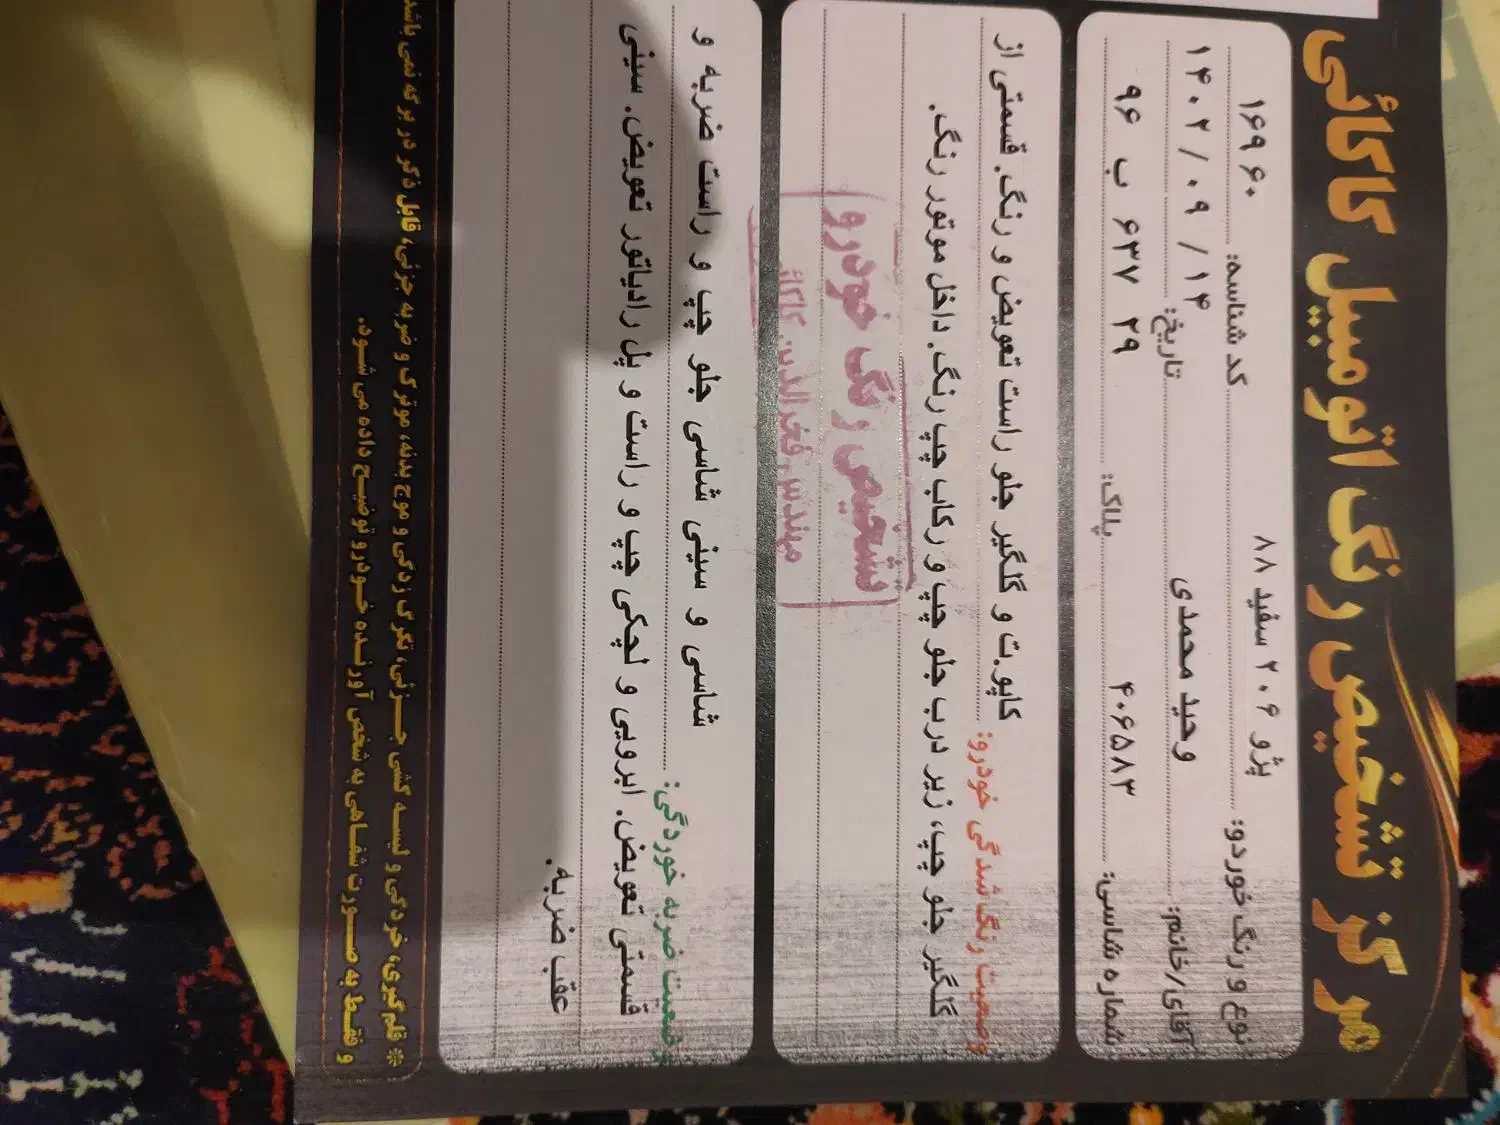 مرکز تشخیص رنگ اتومبیل کاکائی
نوع و رنگ خوردو: پژو ۲۰۶ سفید ۸۸ کد شناسه: ۱۶۹۶۰
آقای/خانم: وحید محمدی تاریخ: ۱۴۰۲/۰۹/۱۴
شماره شاسی: ۴۰۶۵۸۳ پلاک: ۲۹ ۶۳۷ ب ۹۶
وضعیت رنگ شدگی خودرو: کاپوت و گلگیر جلو راست تعویض و رنگ. قسمتی از
گلگیر جلو چپ، زیر درب جلو چپ و رکاب چپ رنگ. داخل موتور رنگ.
تشخیص رنگ خودرو
مهندس فخرالدین کاکائی
وضعیت ضربه خوردگی: شاسی و سینی شاسی جلو چپ و راست ضربه و
قسمتی تعویض. ابرویی و لچکی چپ و راست و پل رادیاتور تعویض. سینی
عقب ضربه.
* قلم گیری، خردگی و لیسه گشی جزئی، تگرگ زدگی و موج بدنه، موترک و ضربه جزئی، قابل ذکر در برگه نمی باشد
و فقط به صورت شفاهی به شخص آورنده خودرو توضیح داده می شود.